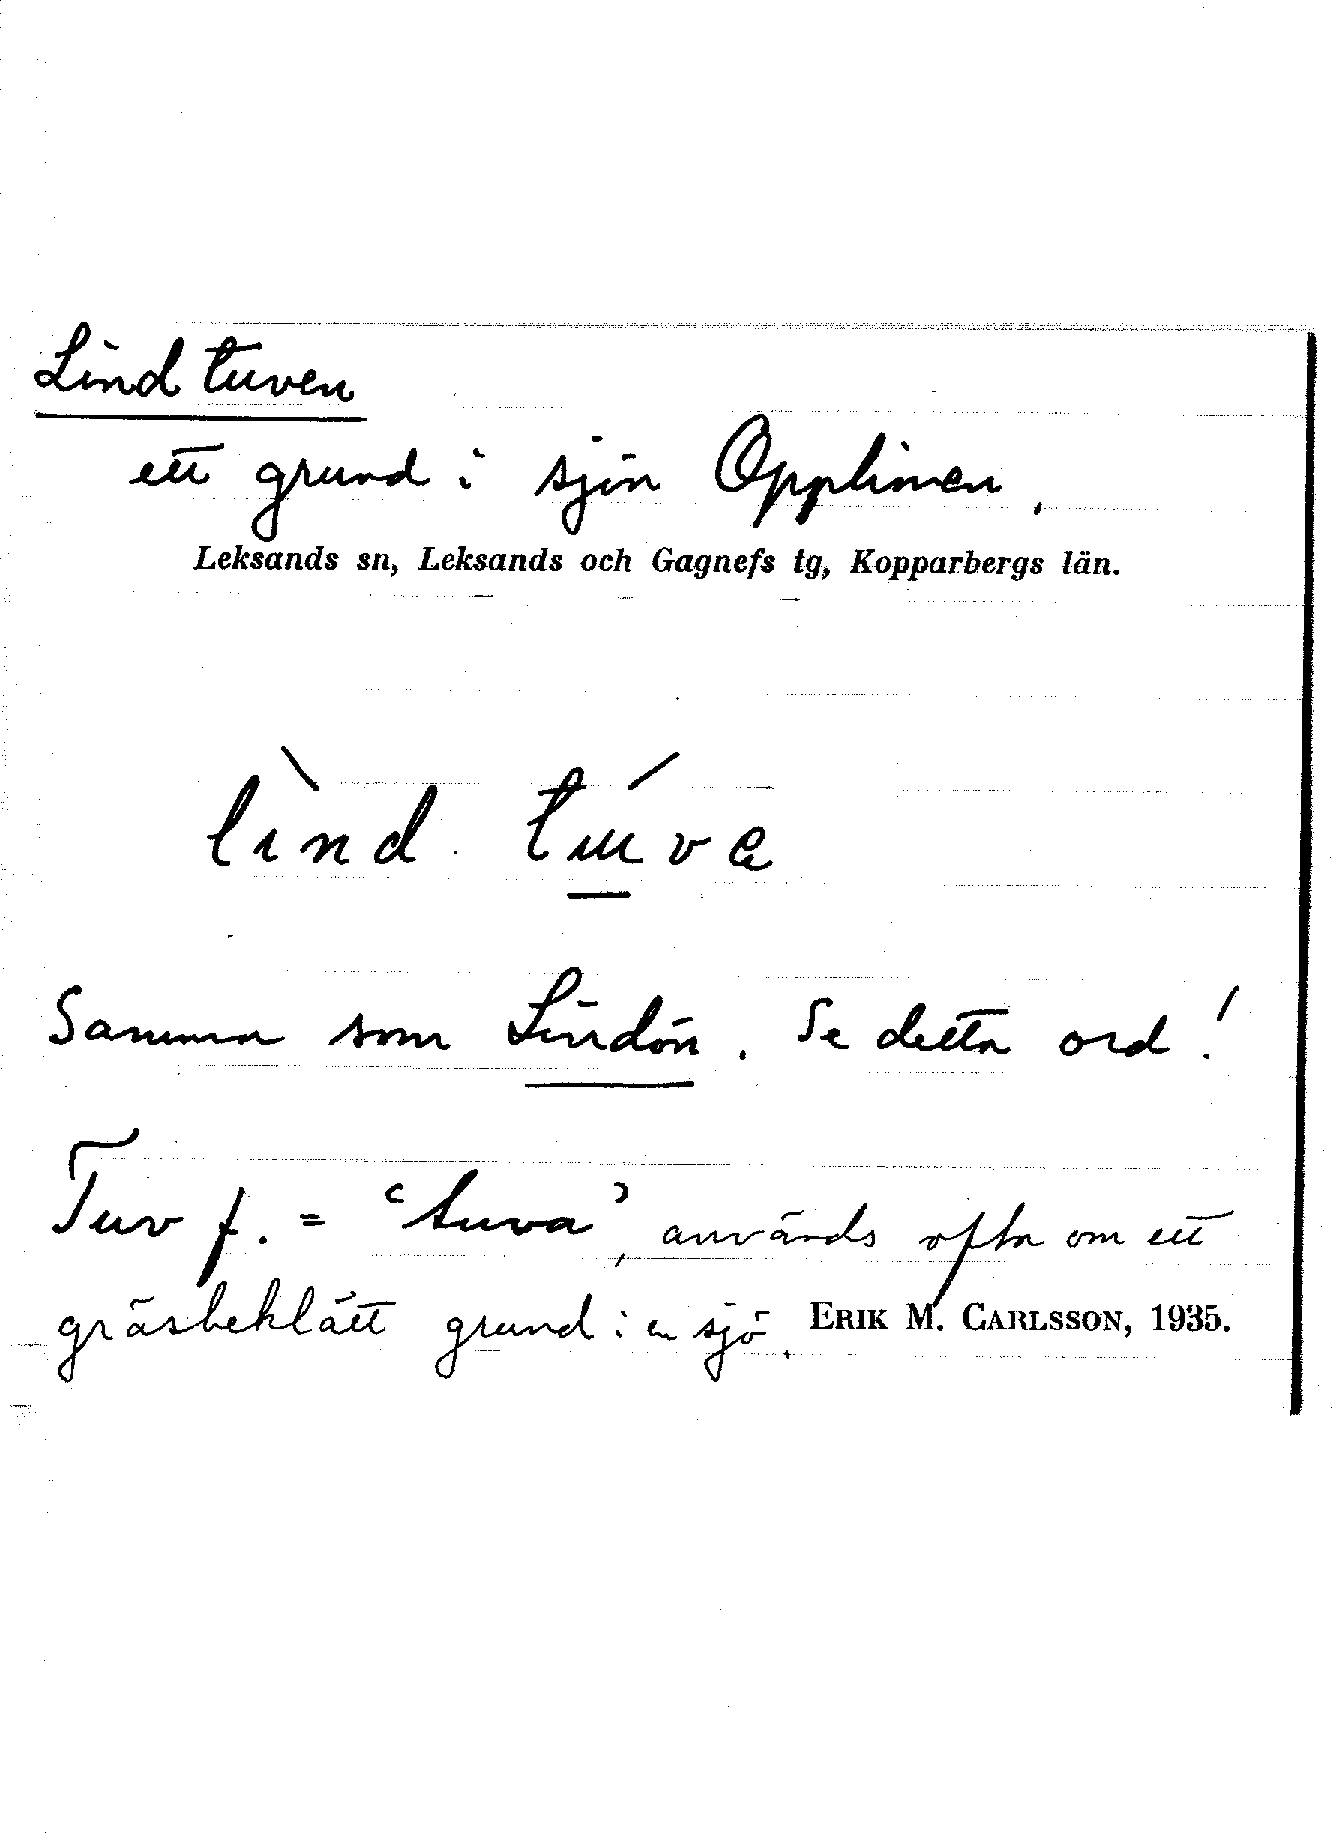 Lindtuven
ett grund i sjön Opplimen.
Leksands sn, Leksands och Gagnefs tg, Kopparbergs län.
Samma som Lindön. Se detta ord!
Tuv f. = 'tuva', används ofta om ett
gräsbeklätt grund i en sjö.
ERIK M. CARLSSON, 1935.